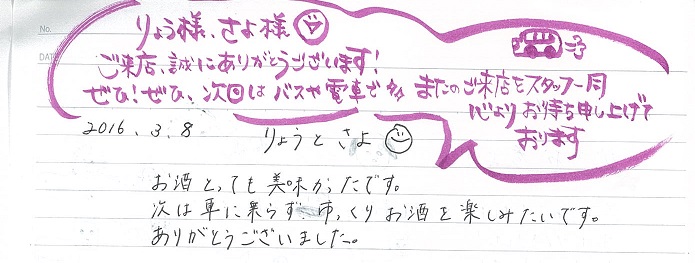 No.
DATE
りょう様、さよ様
ご来店、誠にありがとうございます!
ぜひ!ぜひ、次回はバスや電車で
またのご来店をスタッフ一同
心よりお待ち申し上げて
おります
2016.3.8
りょうとさよ
お酒とっても美味かったです。
次は車に乗らず、ゆっくりお酒を楽しみたいです。
ありがとうございました。